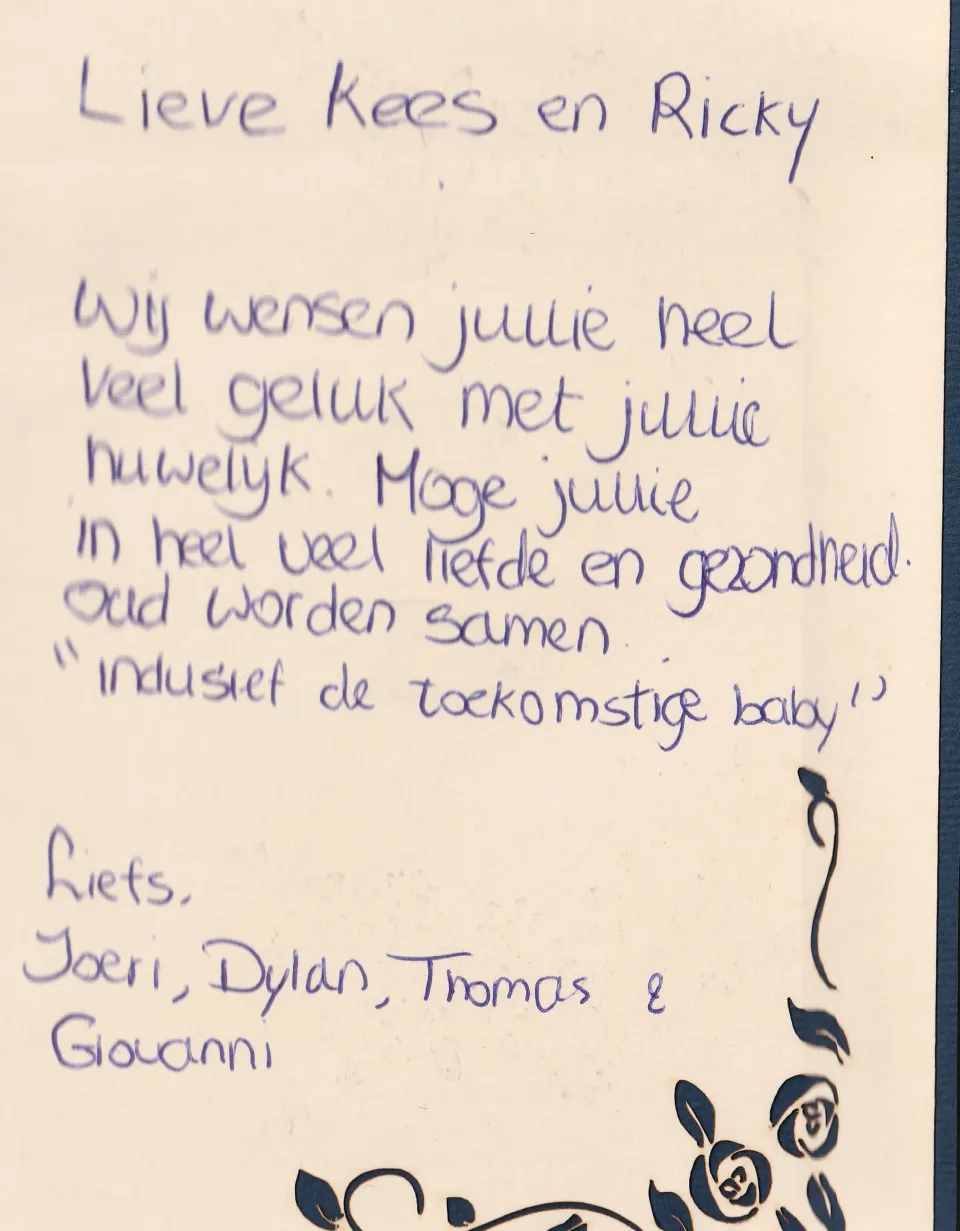 Lieve Kees en Ricky
Wij wensen jullie heel
veel geluk met jullie
huwelijk. Moge jullie
in heel veel liefde en gezondheid.
oud worden samen.
"inclusief de toekomstige baby"
Liefs,
Joeri, Dylan, Thomas &
Giovanni